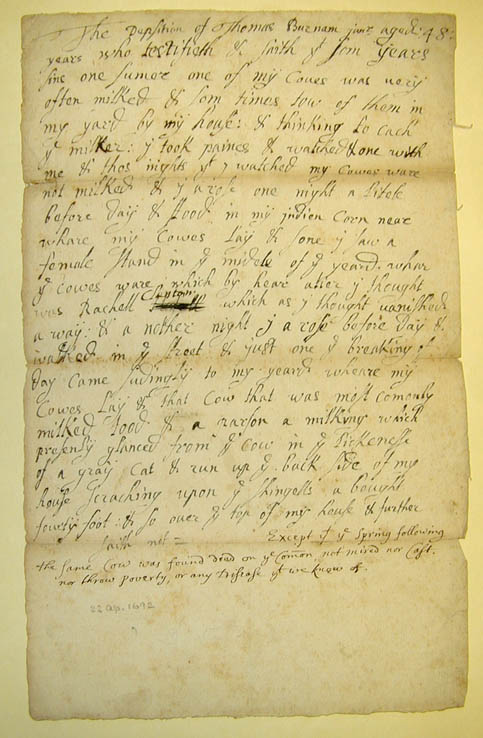 The Deposition of Thomas Burnam junr aged: 48:
years who testifieth & saith yt som years
sinc one sumer one of my Cowes was uery
often milked & som times tow of them in
my yard by my house: & thinking to cach
ye milker: j took paines & watched & one with
me & thos nights yt j watched my Cowes ware
not milked & j arose one night a litele
before day & stood in my jndien Corn near
whare my Cowes lay & sone j saw a
female stand in ye midele of ye yeard. whar
ye Cowes ware which by hear atier j thought
was Rachell Clenton which as j thought vanished
a way: & a nother night j a rose before day &
walked in ye street & just one ye breaking of
day Came sudingly to my yeard wheare my
Cowes lay & that Cow that was most comonly
milked stood & a parson a milking which
presently glanced from ye Cow in ye lickenese
of a gray Cat & run up ye back side of my
house scraching upon ye shingells a bought
fourty foot: & so ouer ye top of my house & further
saith not = Except yt ye Spring following
the same Cow was found died on ye Comon, not mired nor Cast.
nor throw poverty, or any Disease yt we knew of.
22 Ap. 1692